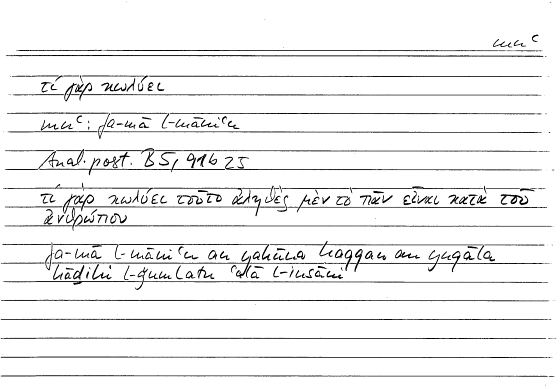 mnᶜ
τί γὰρ κωλύει
mnᶜ: fa-mā l-māniᶜu
Anal. post. B5, 91b25
τί γὰρ κωλύει τοῦτο ἀληθὲς μὲν τὸ πᾶν εἶναι κατὰ τοῦ
ἀνθρώπου
fa-mā l-māniᶜu an yakūna ḥaqqan an yuqāla
hāḏihi l-ǧumlatu ᶜalā l-insāni